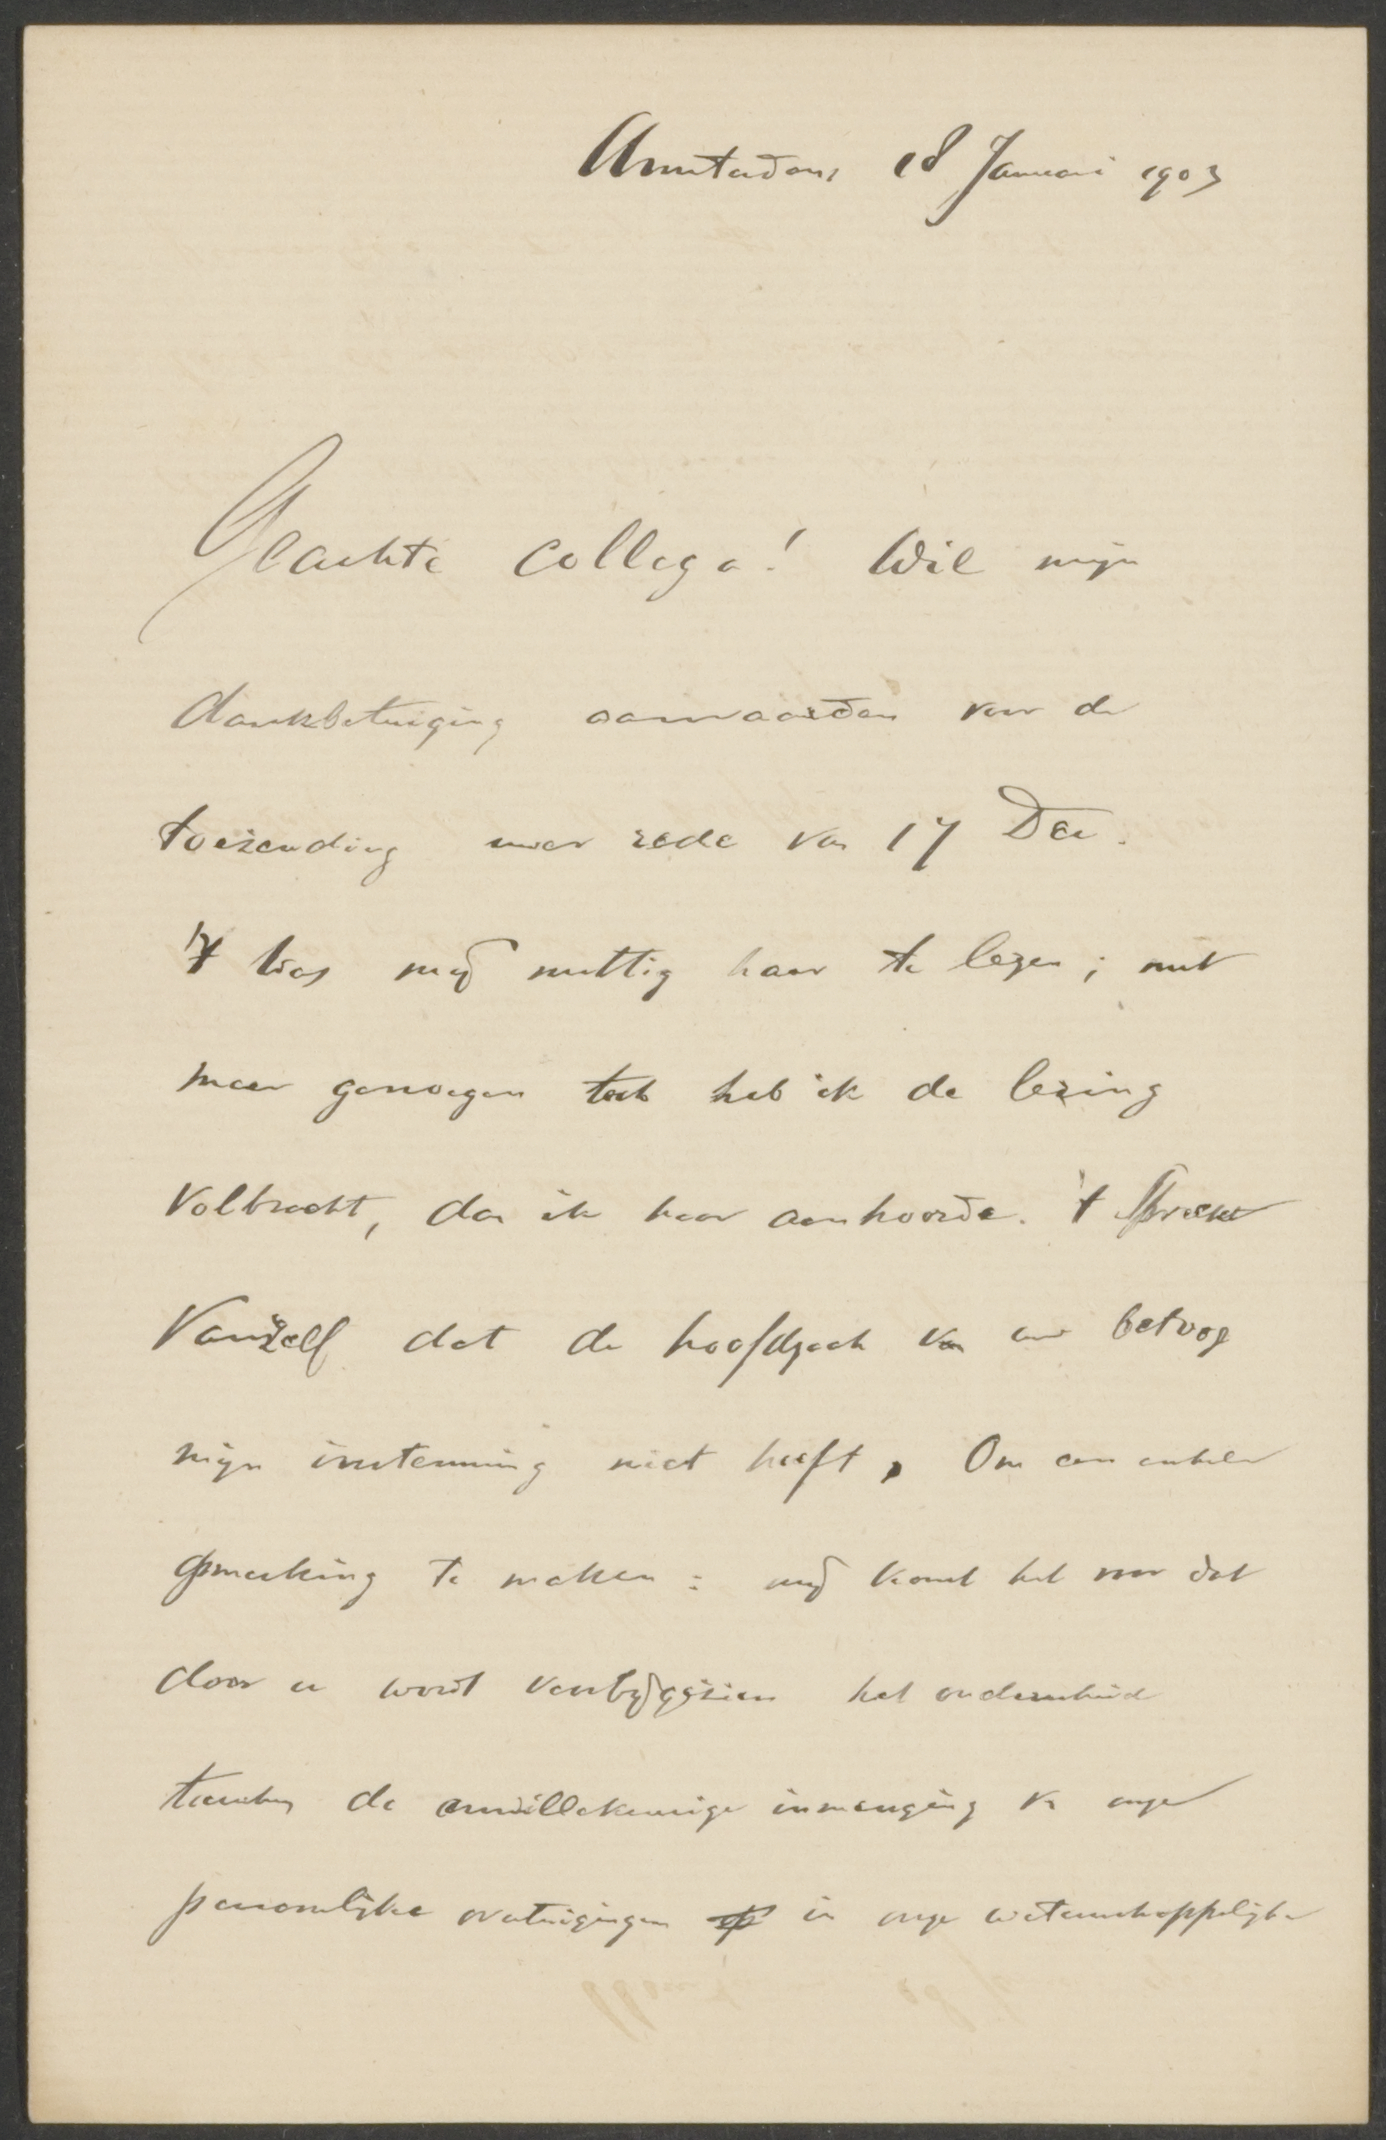 Amsterdam, 18 Januari 1903
Geachte collega! Wil mijn
dankbetuiging aanvaarden voor de
toezending uwer rede van 17 Dec.
't Was mij nuttig haar te lezen; met
meer genoegen toch heb ik de lezing
volbracht, dan ik haar aanhoorde. 't Spreekt
vanzelf dat de hoofdzaak van uw betoog
mijn instemming niet heeft. Om een enkele
opmerking te maken: mij komt het voor dat
door u wordt voorbijgezien het onderscheid
tusschen de onwillekeurige inmenging v. onze
persoonlijke overtuigingen op in onze wetenschappelijke